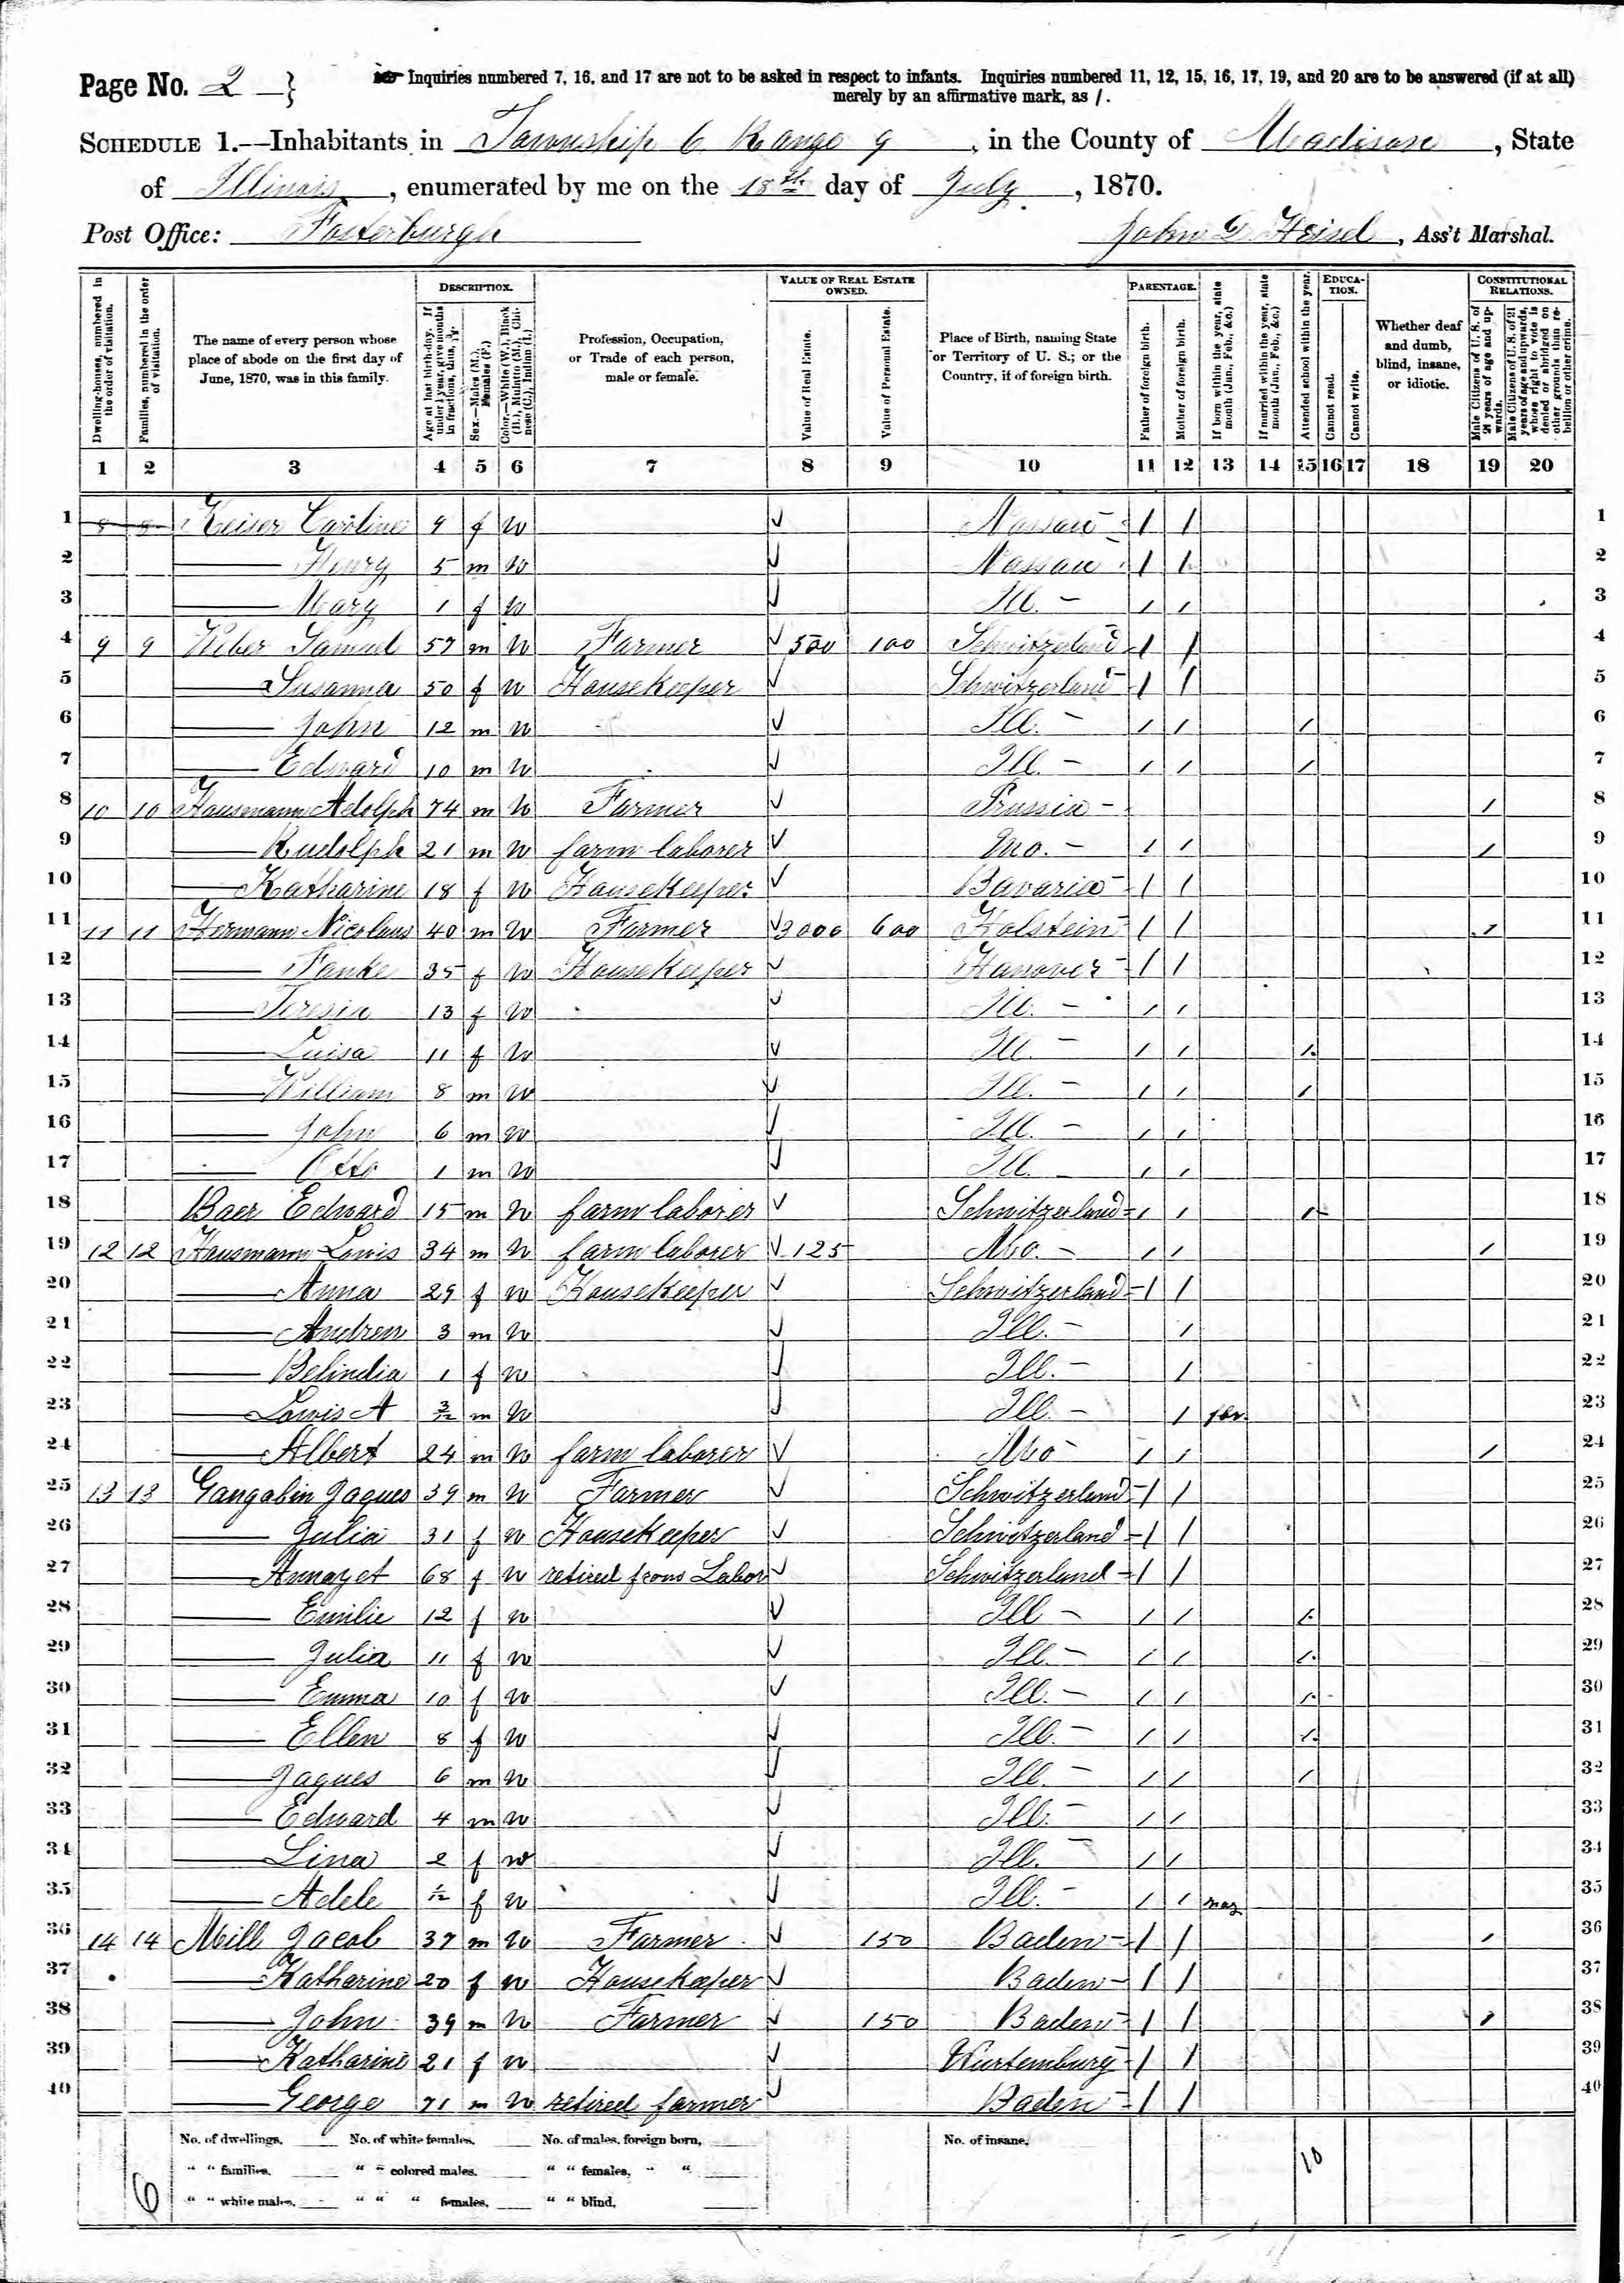 Page No. 2 }
Inquiries numbered 7, 16, and 17 are not to be asked in respect to infants. Inquiries numbered 11, 12, 15, 16, 17, 19, and 20 are to be answered (if at all)
merely by an affirmative mark, as /.
SCHEDULE 1.—Inhabitants in Township 6 Range 9, in the County of Madison, State
of Illinois, enumerated by me on the 18th day of July, 1870.
Post Office: Fosterburgh John D. Heisel, Ass't Marshal.
Dwelling-houses, numbered in the order of visitation.
Families, numbered in the order of visitation.
The name of every person whose place of abode on the first day of June, 1870, was in this family.
DESCRIPTION.
Age at last birth-day. If under 1 year, give months in fractions, thus, 3/12.
Sex.—Males (M.), Females (F.)
Color.—White (W.), Black (B.), Mulatto (M.), Chinese (C.), Indian (I.)
Profession, Occupation, or Trade of each person, male or female.
VALUE OF REAL ESTATE OWNED.
Value of Real Estate.
Value of Personal Estate.
Place of Birth, naming State or Territory of U. S.; or the Country, if of foreign birth.
PARENTAGE.
Father of foreign birth.
Mother of foreign birth.
If born within the year, state month (Jan., Feb., &c.)
If married within the year, state month (Jan., Feb., &c.)
Attended school within the year.
EDUCATION.
Cannot read.
Cannot write.
Whether deaf and dumb, blind, insane, or idiotic.
CONSTITUTIONAL RELATIONS.
Male Citizens of U. S. of 21 years of age and upwards.
Male Citizens of U. S. of 21 years of age and upwards, whose right to vote is denied or abridged on other grounds than rebellion or other crime.
1 2 3 4 5 6 7 8 9 10 11 12 13 14 15 16 17 18 19 20
1 8 8 Keiser Caroline 9 f W Nassau / / 1
2 Henry 5 m W Nassau / / 2
3 Mary 1 f W Ill. / / 3
4 9 9 Samuel 57 m W Farmer 500 100 Schwitzerland / / 4
5 Susanna 50 f W Housekeeper Schwitzerland / / 5
6 John 12 m W Ill. / / / 6
7 Edward 10 m W Ill. / / / 7
8 10 10 Hausmann Adolph 74 m W Farmer Prussia / 8
9 Rudolph 21 m W farm laborer Mo. / / / 9
10 Katharine 18 f W Housekeeper Bavaria / / 10
11 11 11 Hermann Nicolaus 40 m W Farmer 3000 600 Holstein / / / 11
12 35 f W Housekeeper Hanover / / 12
13 Teresia 13 f W Ill. / / 13
14 Luisa 11 f W Ill. / / / 14
15 William 8 m W Ill. / / / 15
16 John 6 m W Ill. / / 16
17 Otto 1 m W Ill. / / 17
18 Baer Edward 15 m W farm laborer Schwitzerland / / / 18
19 12 12 Hausmann Lowis 34 m W farm laborer 125 Mo. / / / 19
20 Anna 29 f W Housekeeper Schwitzerland / / 20
21 Andrew 3 m W Ill. / 21
22 Belindia 1 f W Ill. / 22
23 Lowis A 3/12 m W Ill. / 23
24 Albert 24 m W farm laborer Mo / / / 24
25 13 13 Gangabin Jaques 39 m W Farmer Schwitzerland / / 25
26 Julia 31 f W Housekeeper Schwitzerland / / 26
27 Annazet 68 f W retired from Labor Schwitzerland / / 27
28 Emilie 12 f W Ill / / / 28
29 Julia 11 f W Ill. / / / 29
30 Emma 10 f W Ill. / / / 30
31 Ellen 8 f W Ill. / / / 31
32 Jaques 6 m W Ill. / / / 32
33 Edward 4 m W Ill. / / 33
34 Lina 2 f W Ill. / / 34
35 Adele 1/12 f W Ill. / / may 35
36 14 14 Mill Jacob 37 m W Farmer 150 Baden / / / 36
37 Katharine 20 f W Housekeeper Baden / / 37
38 John 39 m W Farmer 150 Baden / / / 38
39 Katharine 21 f W Wurtemburg / / 39
40 George 71 m W retired farmer Baden / / 40
No. of dwellings, No. of white females, No. of males, foreign born, No. of insane,
" " families, " " colored males, " " females, " " 10
6 " " white males, " " " females, " " blind,